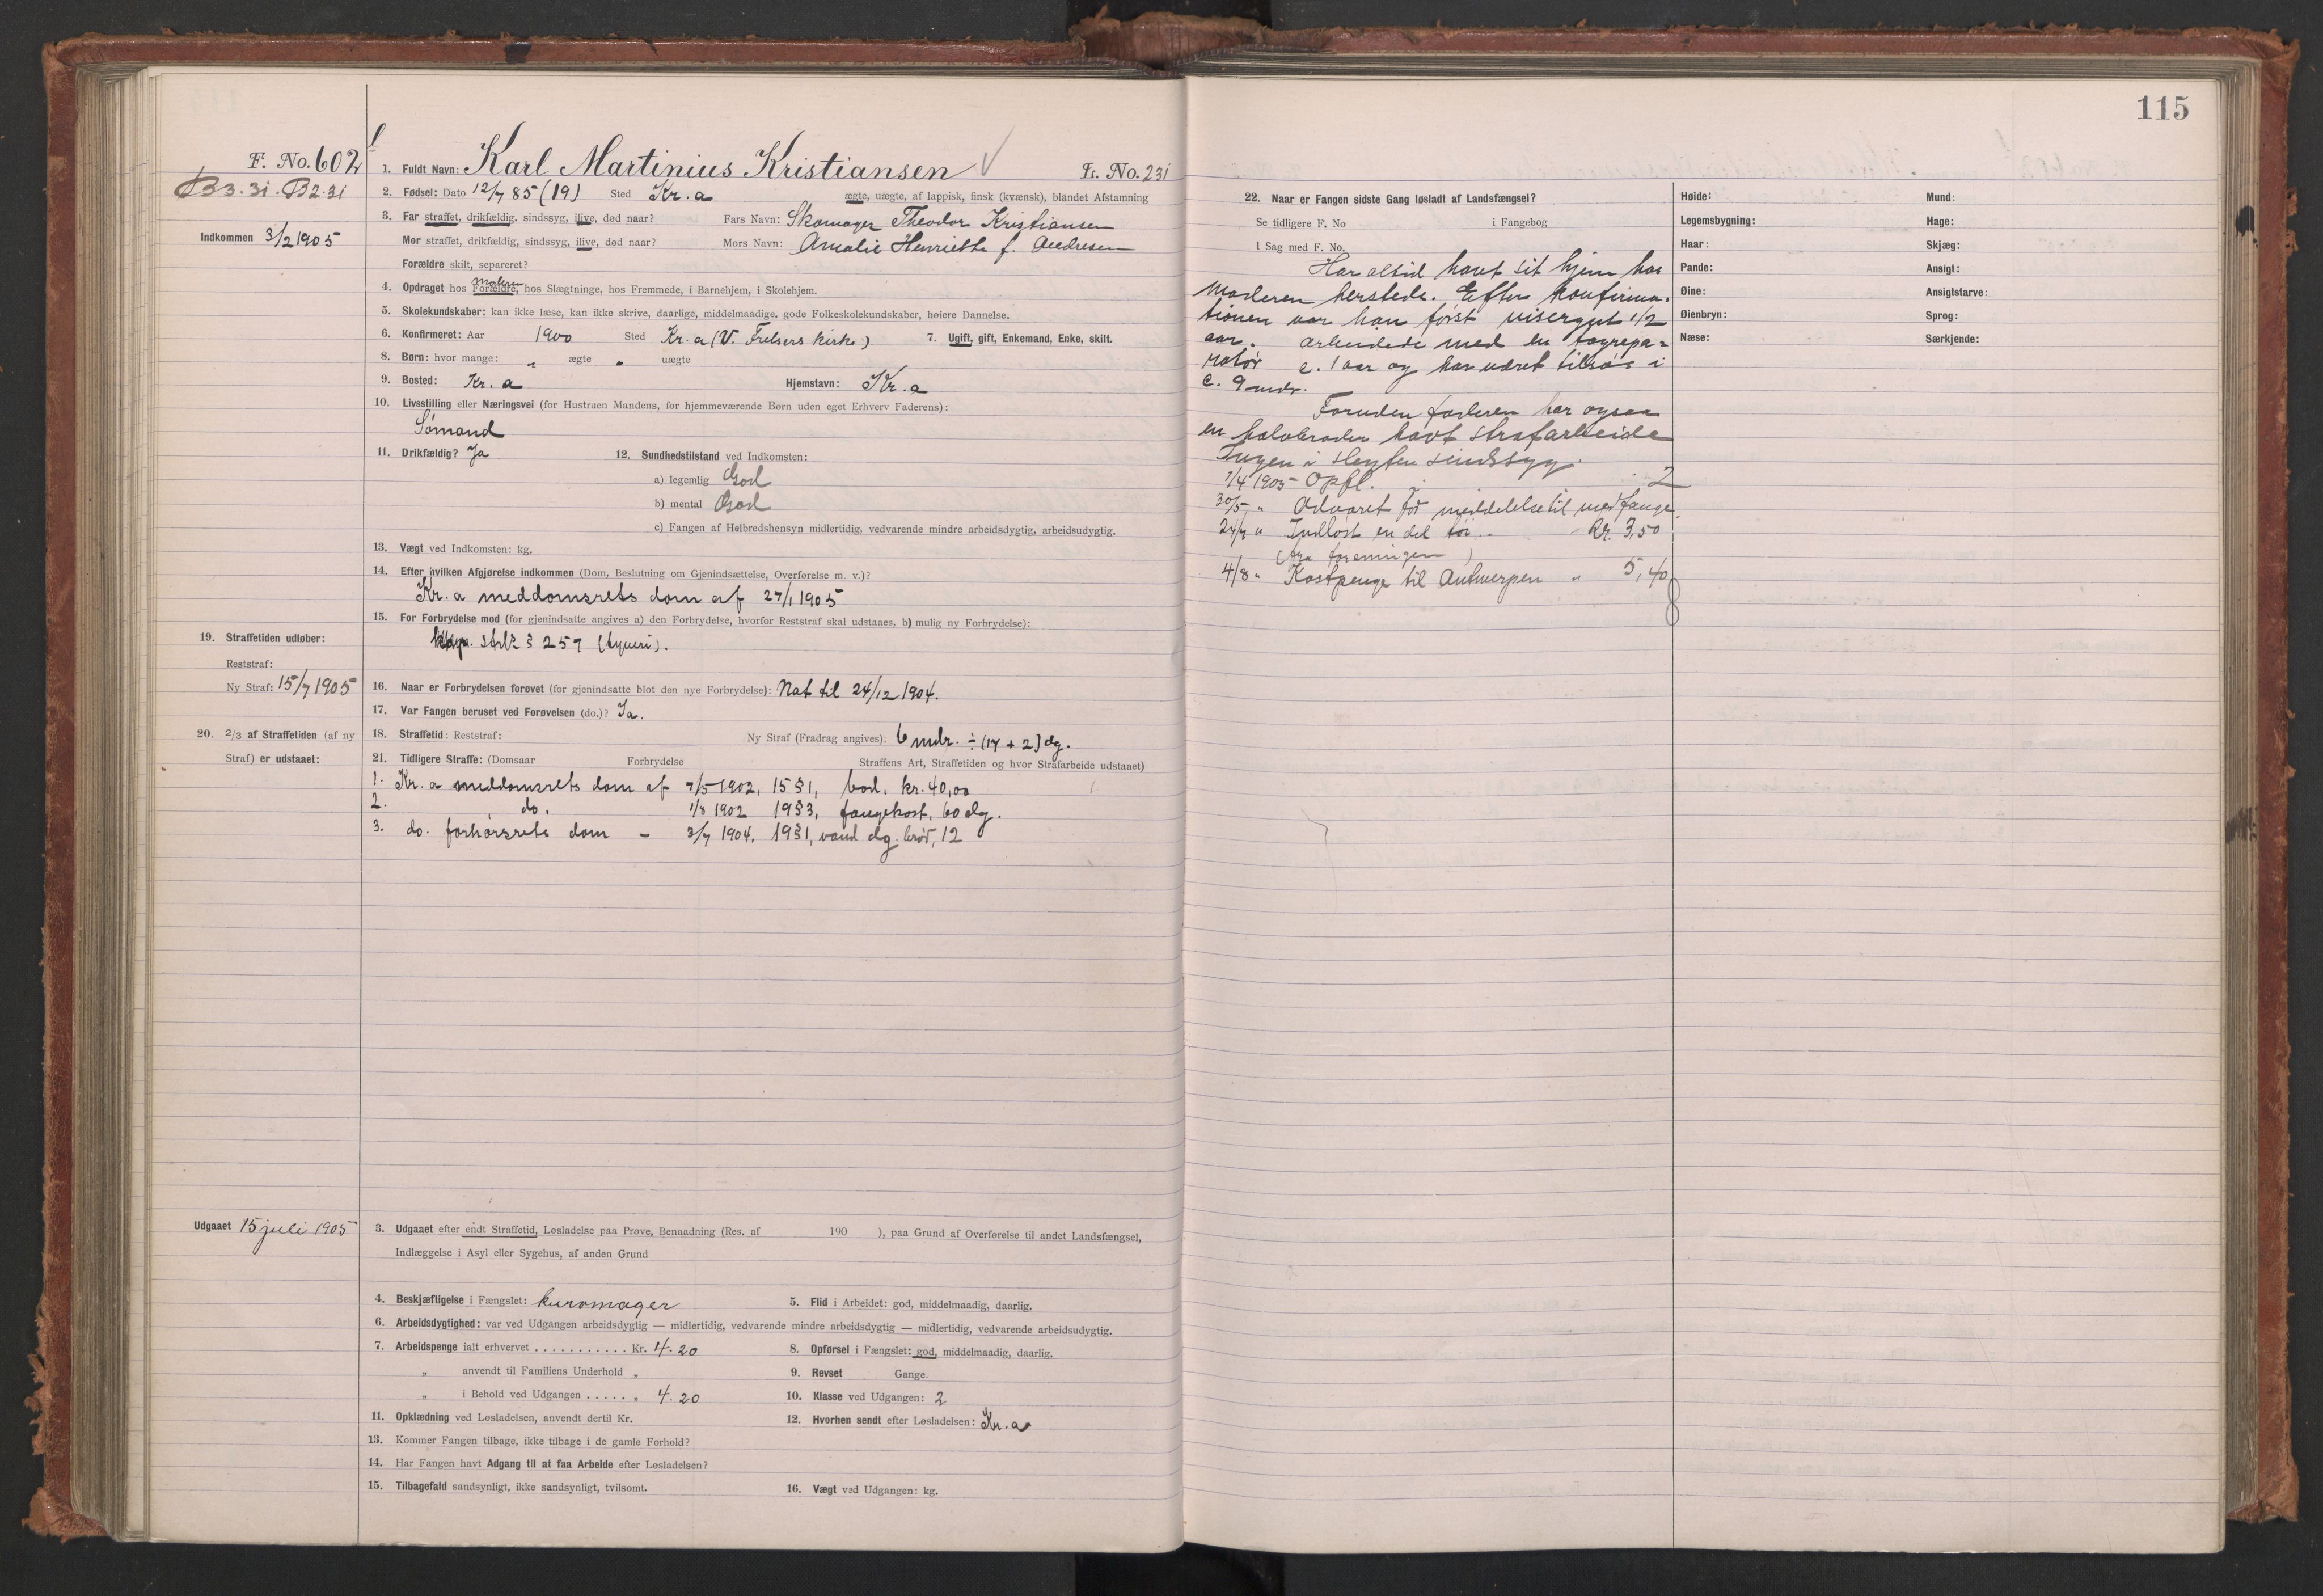 115
F. No. 602
B3.31. B2.31
1. Fuldt Navn: Karl Martinius Kristiansen
L. No. 231
2. Fødsel: Dato 12/7 85 (19) Sted Kr.a ægte, uægte, af lappisk, finsk (kvænsk), blandet Afstamning
Indkommen 3/2 1905
3. Far straffet, drikfældig, sindssyg, ilive, død naar? Fars Navn: Skomager Theodor Kristiansen
Mor straffet, drikfældig, sindssyg, ilive, død naar? Mors Navn: Amalie Henriette f. Andresen
Forældre skilt, separeret?
moderen
4. Opdraget hos Forældre, hos Slægtninge, hos Fremmede, i Barnehjem, i Skolehjem.
5. Skolekundskaber: kan ikke læse, kan ikke skrive, daarlige, middelmaadige, gode Folkeskolekundskaber, høiere Dannelse.
6. Konfirmeret: Aar 1900 Sted Kr.a (V. Frelsers kirke) 7. Ugift, gift, Enkemand, Enke, skilt.
8. Børn: hvor mange: " ægte " uægte
9. Bosted: Kr.a Hjemstavn: Kr.a
10. Livsstilling eller Næringsvei (for Hustruen Mandens, for hjemmeværende Børn uden eget Erhverv Faderens):
Sømand
11. Drikfældig? Ja 12. Sundhedstilstand ved Indkomsten:
a) legemlig God
b) mental God
c) Fangen af Helbredshensyn midlertidig, vedvarende mindre arbeidsdygtig, arbeidsudygtig.
13. Vægt ved Indkomsten: kg.
14. Efter hvilken Afgjørelse indkommen (Dom, Beslutning om Gjenindsættelse, Overførelse m. v.)?
Kr.a meddomsrets dom af 27/1 1905
15. For Forbrydelse mod (for gjenindsatte angives a) den Forbrydelse, hvorfor Reststraf skal udstaaes, b) mulig ny Forbrydelse):
strl. § 257 (tyveri).
19. Straffetiden udløber:
Reststraf:
Ny Straf: 15/7 1905
16. Naar er Forbrydelsen forøvet (for gjenindsatte blot den nye Forbrydelse): Nat til 24/12 1904.
17. Var Fangen beruset ved Forøvelsen (do.)? Ja.
20. 2/3 af Straffetiden (af ny
Straf) er udstaaet:
18. Straffetid: Reststraf: Ny Straf (Fradrag angives): 6 mdr. ÷ (17 + 2) dg.
21. Tidligere Straffe: (Domsaar Forbrydelse Straffens Art, Straffetiden og hvor Strafarbeide udstaaet)
1. Kr.a meddomsrets dom af 7/5 1902, 15 § 1, bod. kr. 40,00
2. do. 1/8 1902 19 § 3, fangekost, 60 dg.
3. do. forhørsrets dom - 2/7 1904, 19 § 1, vand og brød, 12
Udgaaet 15 juli 1905
3. Udgaaet efter endt Straffetid, Løsladelse paa Prøve, Benaadning (Res. af 190 ), paa Grund af Overførelse til andet Landsfængsel,
Indlæggelse i Asyl eller Sygehus, af anden Grund
4. Beskjæftigelse i Fængslet: kurvmager 5. Flid i Arbeidet: god, middelmaadig, daarlig.
6. Arbeidsdygtighed: var ved Udgangen arbeidsdygtig — midlertidig, vedvarende mindre arbeidsdygtig — midlertidig, vedvarende arbeidsudygtig.
7. Arbeidspenge ialt erhvervet . . . . . . . . . . . Kr. 4.20 8. Opførsel i Fængslet: god, middelmaadig, daarlig.
" anvendt til Familiens Underhold " 9. Revset Gange.
" i Behold ved Udgangen . . . . . " 4.20 10. Klasse ved Udgangen: 2
11. Opklædning ved Løsladelsen, anvendt dertil Kr. 12. Hvorhen sendt efter Løsladelsen: Kr.a
13. Kommer Fangen tilbage, ikke tilbage i de gamle Forhold?
14. Har Fangen havt Adgang til at faa Arbeide efter Løsladelsen?
15. Tilbagefald sandsynligt, ikke sandsynligt, tvilsomt. 16. Vægt ved Udgangen: kg.
22. Naar er Fangen sidste Gang løsladt af Landsfængsel?
Se tidligere F. No i Fangebog
I Sag med F. No.
Har altid havt sit hjem hos
moderen hersteds. Efter konfirma-
tionen var han først visergut 1/2
aar. arbeidede med en repa-
ratør c. 1 aar og har været tilsøs i
c. 9 mdr.
Foruden faderen har ogsaa
en halvbroder havt strafarbeide
Ingen i slegten sindssyg.
7/4 1905 Opfl. 2
30/5 " Advaret for meddelelse til medfange.
24/7 " Indløst en del tøi .. Kr. 3,50
foreningen )
4/8 " Kostpenge til Antwerpen " 5,40
Høide: Mund:
Legemsbygning: Hage:
Haar: Skjæg:
Pande: Ansigt:
Øine: Ansigtsfarve:
Øienbryn: Sprog:
Næse: Særkjende: